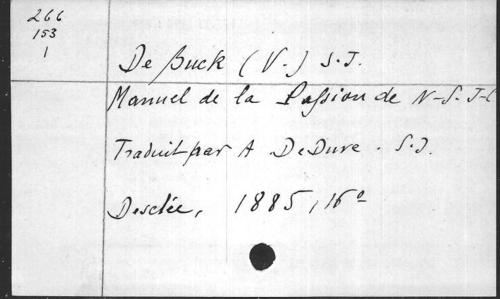 266
153
1
De Buck (V.) S.J.
Manuel de la Passion de N-S. J-C
Traduit par A DeDure. S.J.
Desclée, 1885, 16º